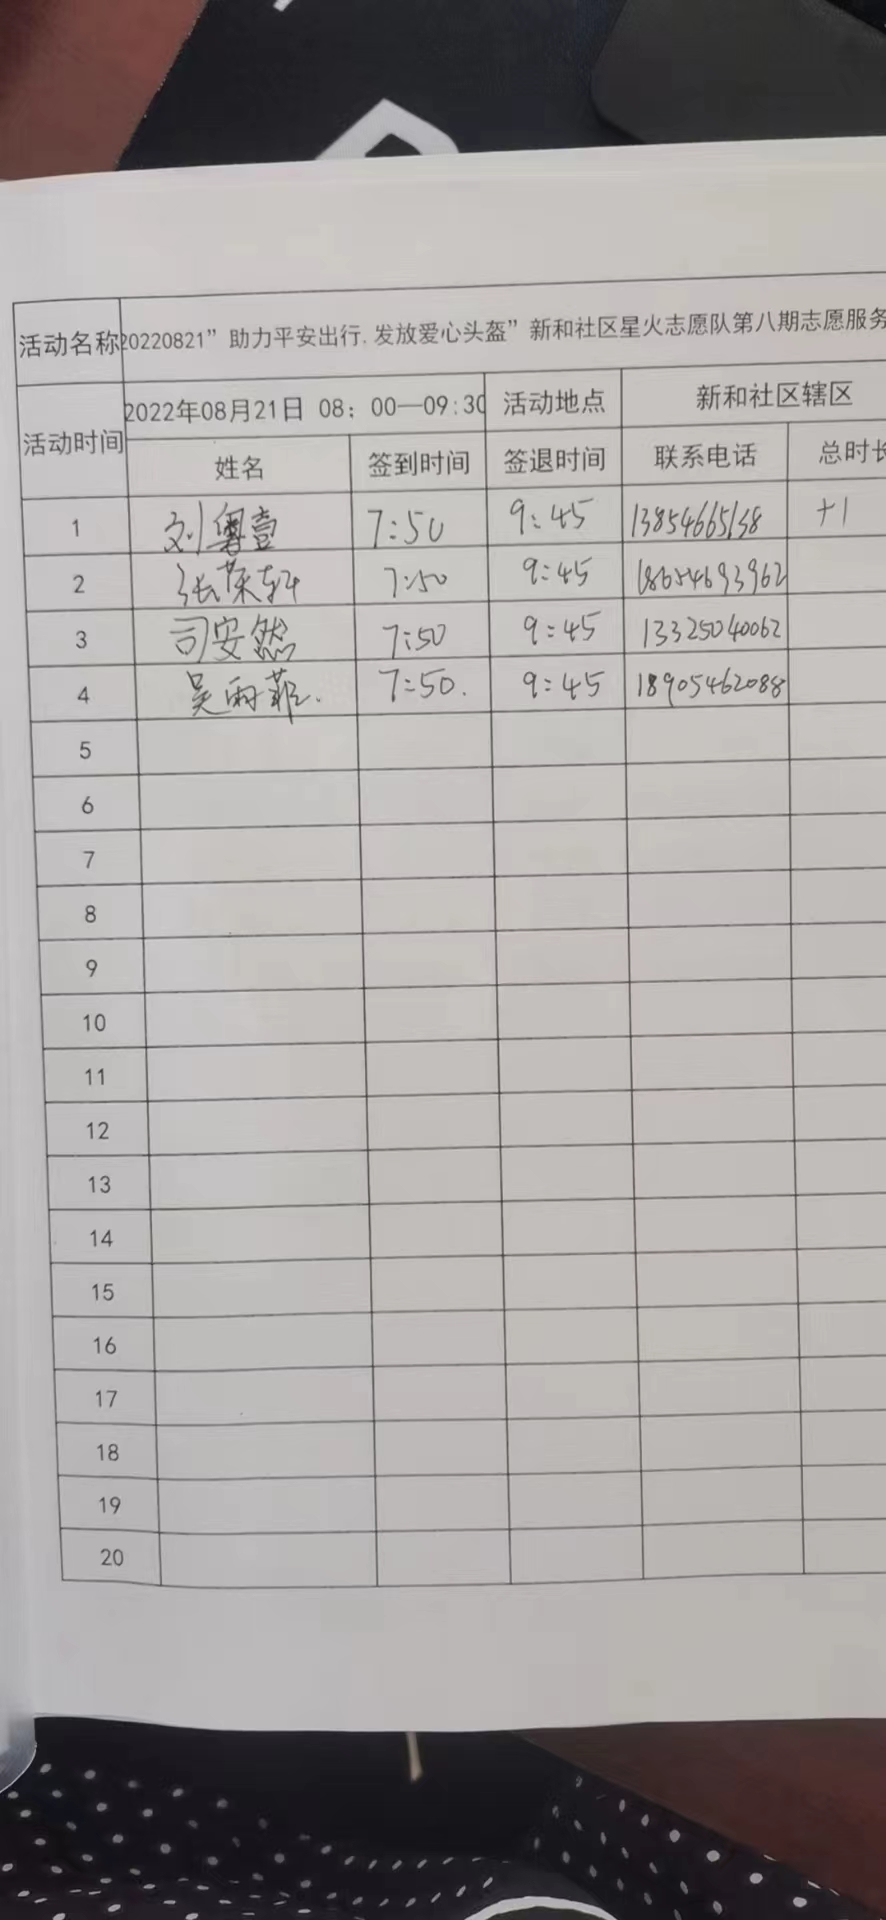 活动名称 20220821”助力平安出行.发放爱心头盔”新和社区星火志愿队第八期志愿服务
活动时间 2022年08月21日 08:00—09:30 活动地点 新和社区辖区
姓名 签到时间 签退时间 联系电话 总时长
1 刘粤壹 7:50 9:45 13854665138 +1
2 张荣轩 7:50 9:45 18654693962
3 司安然 7:50 9:45 13325040062
4 吴雨菲. 7:50. 9:45 18905462088
5
6
7
8
9
10
11
12
13
14
15
16
17
18
19
20